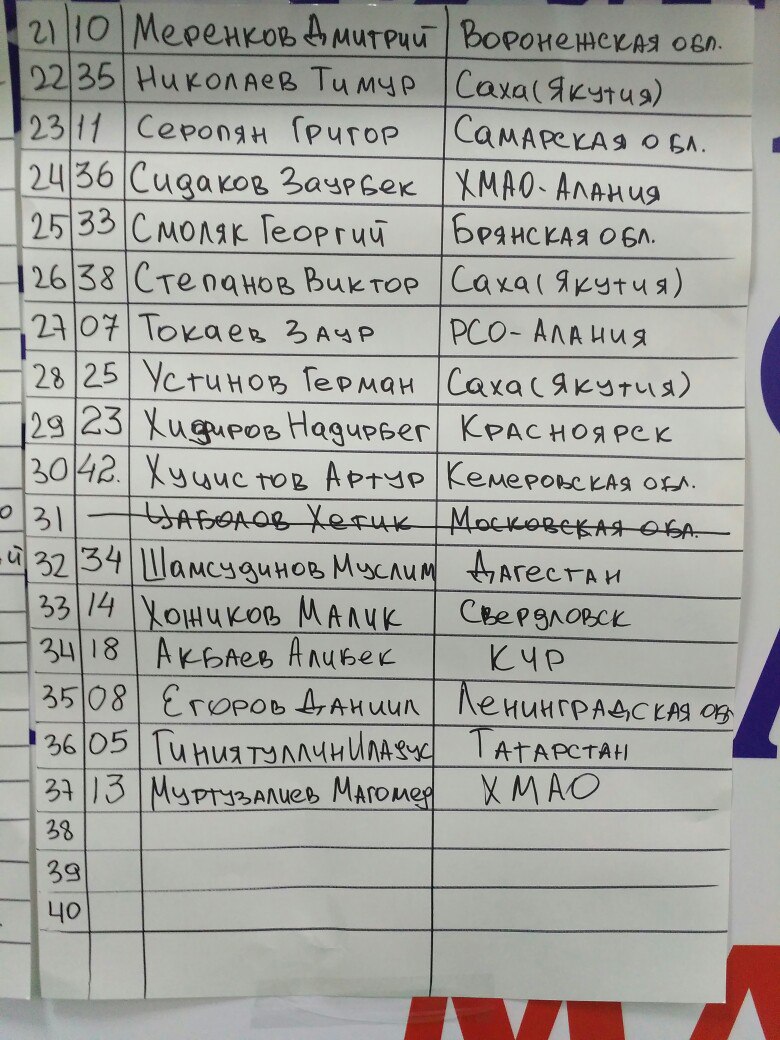 21 10 Меренков Дмитрий Воронежская обл.
22 35 Николаев Тимур Саха (Якутия)
23 11 Серопян Григор Самарская обл.
24 36 Сидаков Заурбек ХМАО-Алания
25 33 Смоляк Георгий Брянская обл.
26 38 Степанов Виктор Саха (Якутия)
27 07 Токаев Заур РСО-Алания
28 25 Устинов Герман Саха (Якутия)
29 23 Хидиров Надирбег Красноярск
30 42. Хуцистов Артур Кемеровская обл.
31 — Цаболов Хетик Московская обл.
32 34 Шамсудинов Муслим Дагестан
33 14 Хожиков Малик Свердловск
34 18 Акбаев Алибек КЧР
35 08 Егоров Даниил Ленинградская обл
36 05 Гиниятуллин Татарстан
37 13 Муртузалиев Магомед ХМАО
38
39
40